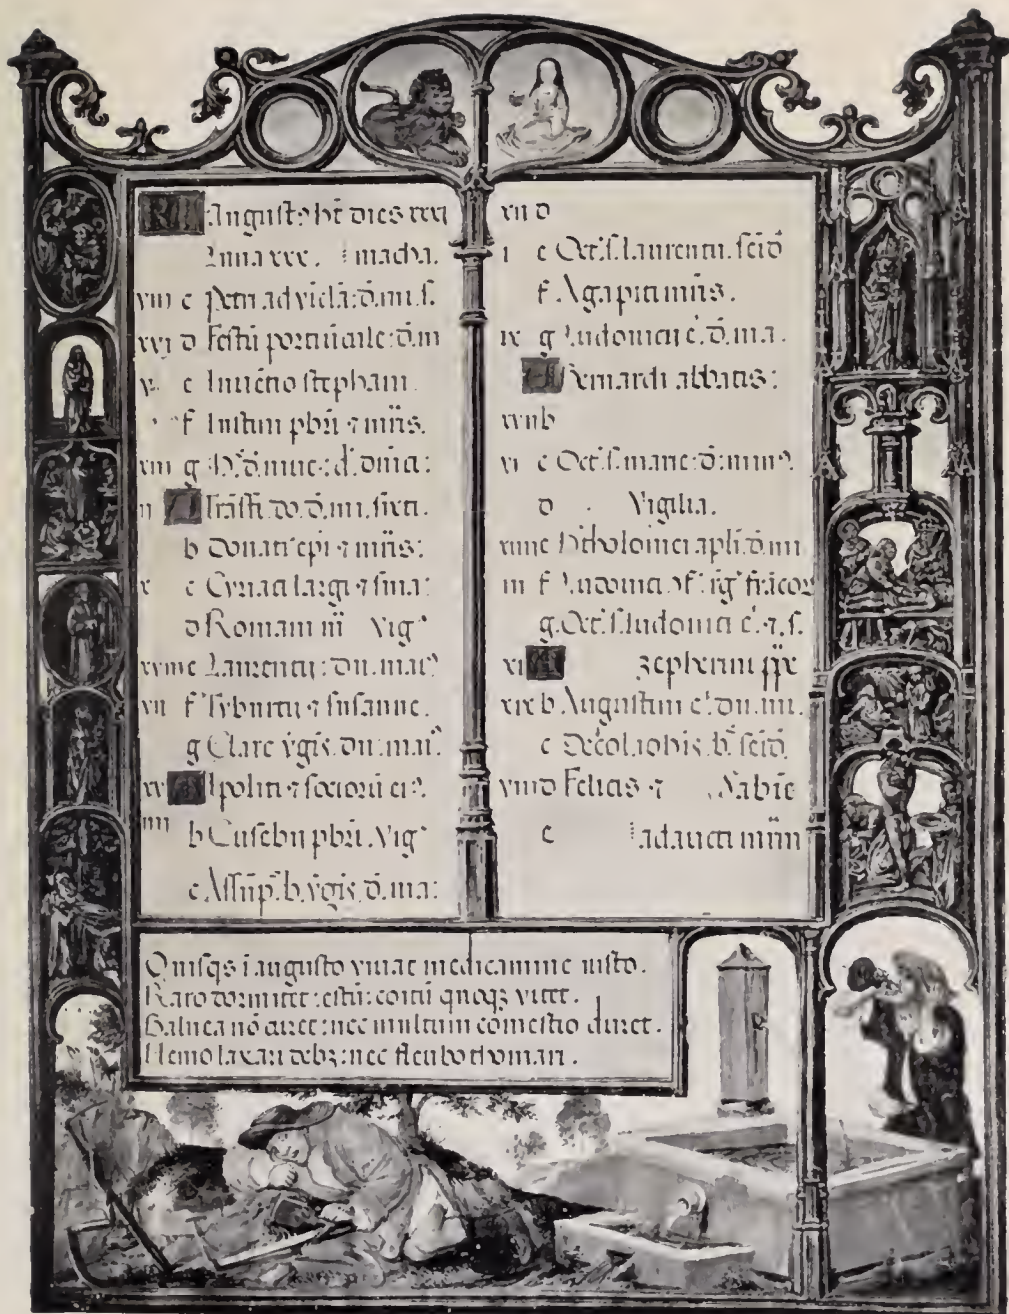 KL Augustꝰ ht dies xxxi
Luna xxx. macha.
viii c Petri ad vīcla: d. mi. s.
xvi d Festū portiūcule: d. m
e Inuētio stephani.
f Iustini pbri ⁊ mris.
xiii g
ii A Trāsfi. do. d. mi. sixti.
b Donati epi ⁊ mris:
x c Cyriaci largi ⁊ sma:
d Romani m vigꝰ
xviii e Laurentii: du. maꝰ
vii f Tyburtii ⁊ susanne.
g Clare vgis. du. maꝰ.
xv A Ipoliti ⁊ sociorū eiꝰ.
iiii b Eusebii pbri. vigꝰ
c Assūp. b. vgis. d. ma:
xii d
i e Oct. s. laurentii. scid
f Agapiti mris.
ix g Ludouici c. d. ma.
A Bernardi abbatis:
xvii b
vi c Oct. s. marie: d: minꝰ.
d Vigilia.
xiiii e Btholomei apli. d. mi
iii f Ludouici ɔf. rgꝭ frācoꝝ
g Oct. s. ludouici c. ⁊. s.
xi A zepherini ppe
xix b Augustini c. du. mi.
c Decol. iohis. b. scid.
viii d Felicis ⁊ Sabie
e adaucti mrm
Quisqꝫ ī augusto viuat medicamine iusto.
Raro dormitet: estū: coitū quoqꝫ vitet.
Balnea nō curet: nec multum comestio duret.
Nemo laxari debꝫ: nec fleubothomari.